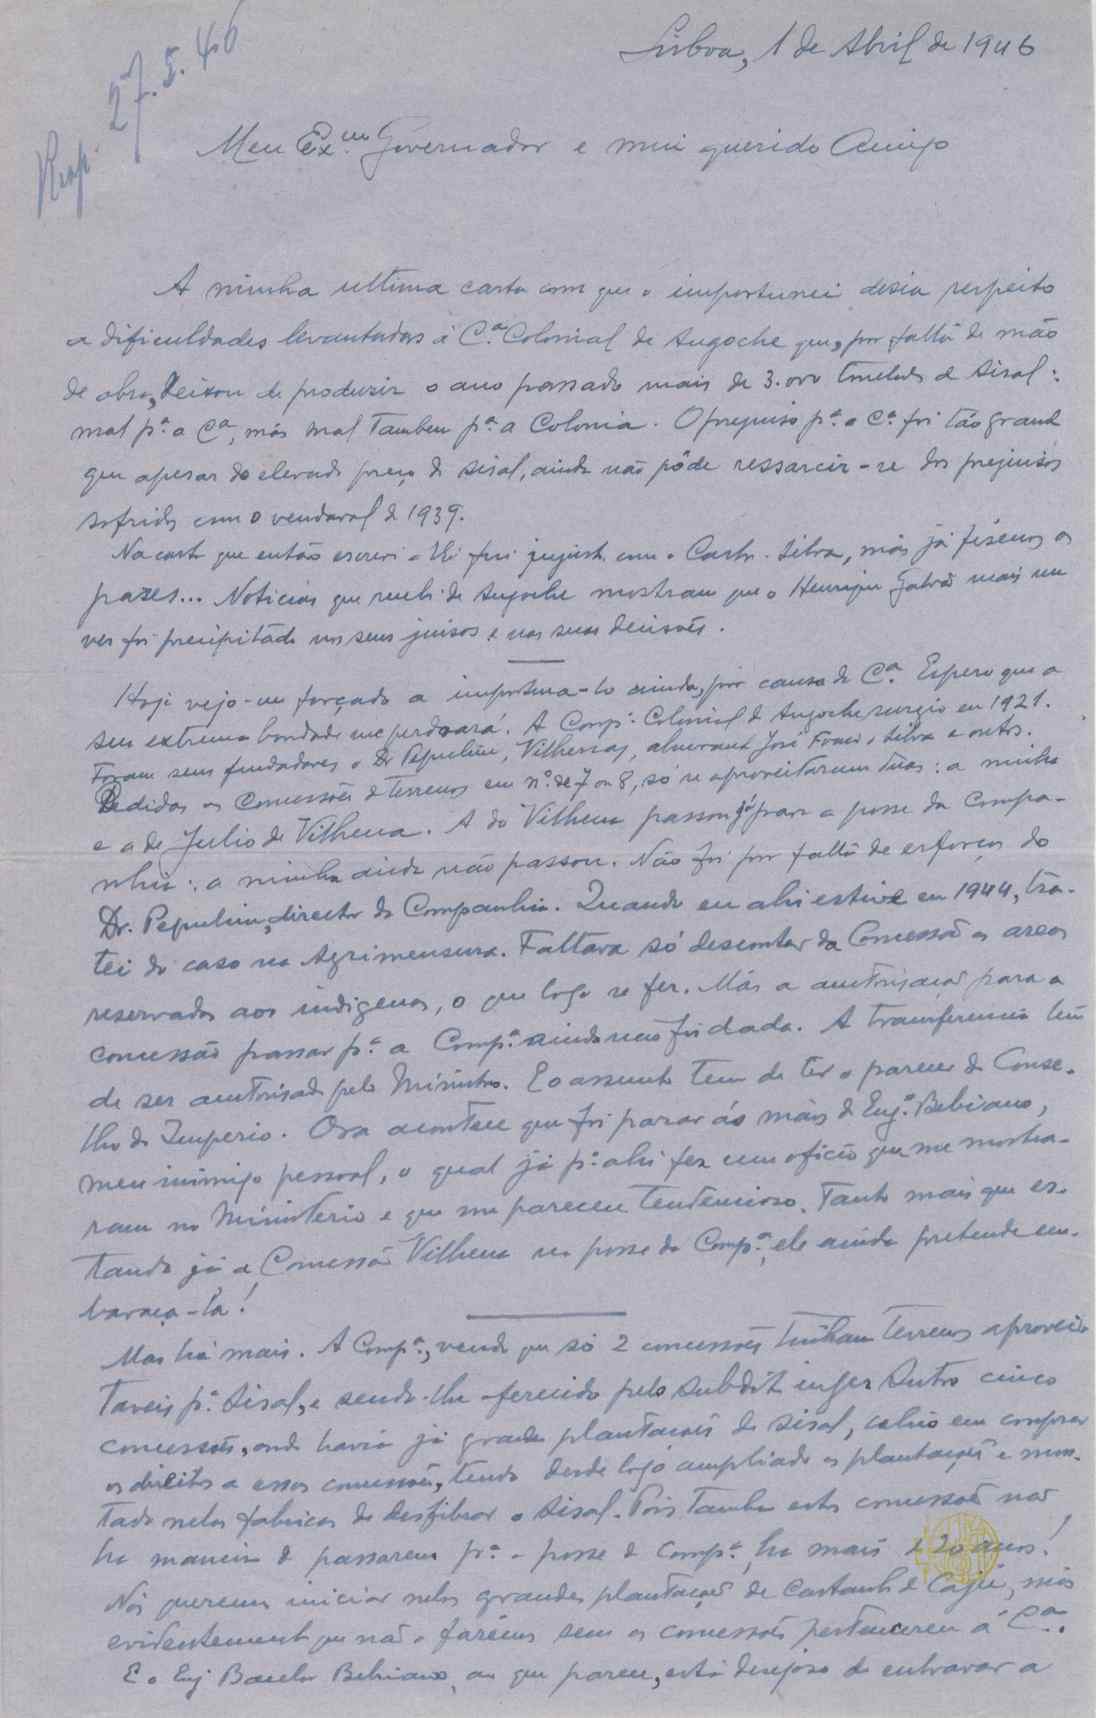 Lisboa, 1 de Abril de 1946
Resp. 27.5.46
Meu Ex.mo Governador e meu querido Amigo
A minha ultima carta com que o importunei dizia respeito
a dificuldades levantadas á C.ª Colonial de Angoche que, por falta de mão
de obra, deixou de produzir o ano passado mais de 3.000 toneladas de sisal:
mal p.ª a Cª, más mal tambem p.ª a Colonia. O prejuiso p.ª a C.ª foi tão grande
que apesar do elevado preço do sisal, ainda não pôde ressarcir-se dos prejuisos
sofridos com o vendaval de 1939.
Na carta que então escrevi a V. fui injusto com o Castro Silva, más já fizemos as
pazes... Noticias que recebi de Angoche mostram que o Henrique Galvão mais uma
vez foi precipitado nos seus juisos e nas suas decisões.
Hoje vejo-me forçado a importuna-lo ainda, por causa da C.ª. Espero que a
sua extrema bondade me perdoará. A Comp.ª Colonial de Angoche surgio em 1921.
Foram seus fundadores o Dr Pepulim, Vilhenas, almirante José Franc.º Silva e outros.
Pedidas as concessões de terrenos em n.º de 7 ou 8, só se aproveitaram duas: a minha
e a de Julio de Vilhena. A do Vilhena passou já para a posse da Compa-
nhia: a minha ainda não passou. Não foi por falta de esforços do
Dr. Pepulim, director da Companhia. Quando eu ahi estive em 1944, tra-
tei do caso na Agrimensura. Faltava só descontar da Concessão as areas
reservadas aos indigenas, o que logo se fez. Más a autorisação para a
concessão passar p.ª a Comp.ª ainda não foi dada. A transferencia tem
de ser autorisada pelo Ministro. E o assunto tem de ter o parecer do Conse-
lho do Imperio. Ora acontece que foi parar ás mãos do Eng.º Bebiano,
meu inimigo pessoal, o qual já p.ª ahi fez um oficio que me mostra-
ram no Ministerio e que me pareceu tendencioso. Tanto mais que es-
tando já a Concessão Vilhena na posse da Comp.ª, ele ainda pretende em-
baraça-la!
Mas há mais. A Comp.ª, vendo que só 2 concessões tinham terrenos aprovei-
taveis p.ª sisal, e sendo-lhe oferecido pelo subdito inglez Sutro cinco
concessões, onde havia já grandes plantações de sisal, em comprar
os direitos a essas concessões, tendo desde logo ampliado as plantações e mon-
tado nelas fabricas de desfibrar o sisal. Pois tambem estas concessões não
ha maneira de passarem p.ª a posse da Comp.ª, ha mais de 20 anos!
Nós queremos iniciar nelas grandes plantações de Castanha de Cajú, más
evidentemente que não o farêmos sem as concessões pertencerem á C.ª.
E o Eng Bacelar Bebiano, ao que parece, está desejoso de entravar a